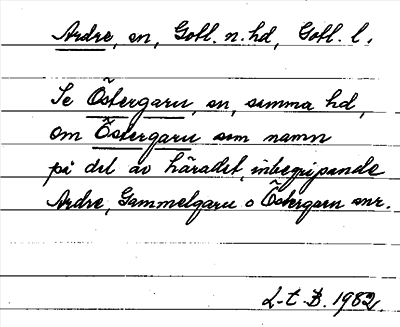 Ardre, sn, Gotl. n. hd, Gotl. l.
Se Östergarn, sn, samma hd,
om Östergarn som namn
på del av häradet, inbegripande
Ardre, Gammelgarn o Östergarn snr.
L-t B. 1982.